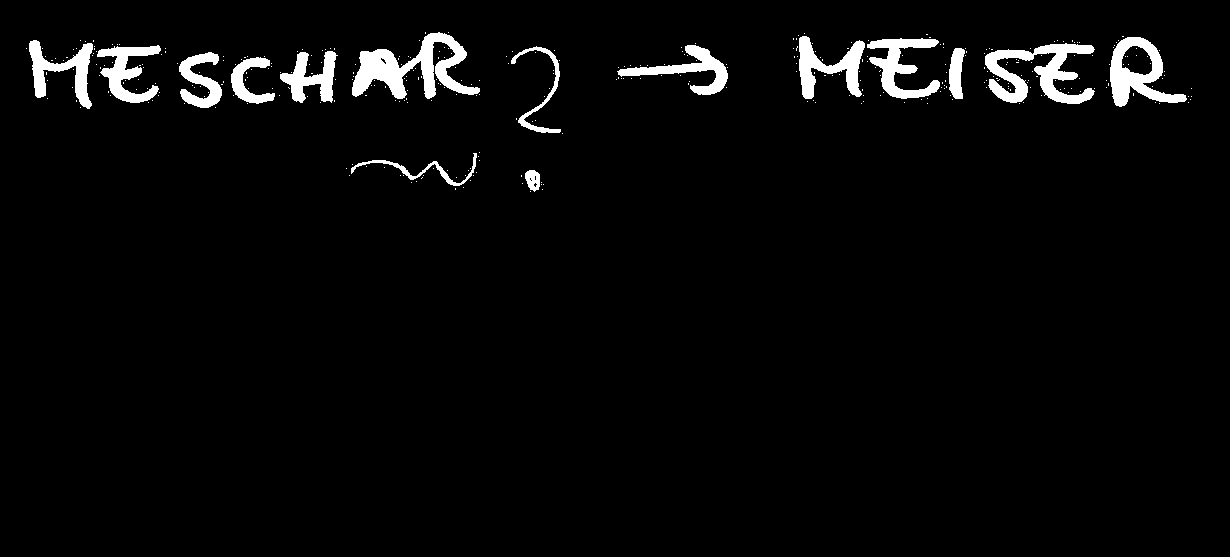 MESCHAR ? → MEISER